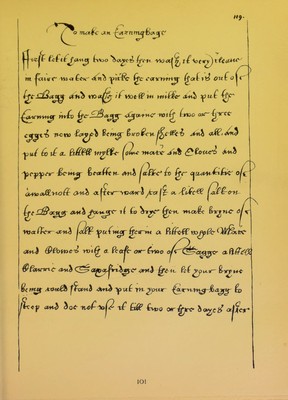 119.
To make an Earning bagg
First let it hang two dayes then wash it very cleane
in faire water and picke the earning that is out of
the Bagg and wash it well in milke and put the
Earning into the Bagg againe with two or three
egges new layed being broken shelles and all. and
put to it a littell mylke some mace and Cloues and
pepper being beatten and salte to the quantitie of
a wallnott and after ward cast a litell salt on
the Bagg and hange it to drye then make bryne of
watter and salt puting ther in a littell whole Mace
and Clowes with a leafe or two of Bayes a littell
Clarrie and Saxafridge and then let your bryne
being could stand and put in your Earning bagg to
steep and doe not vse it till two or thre dayes after
101